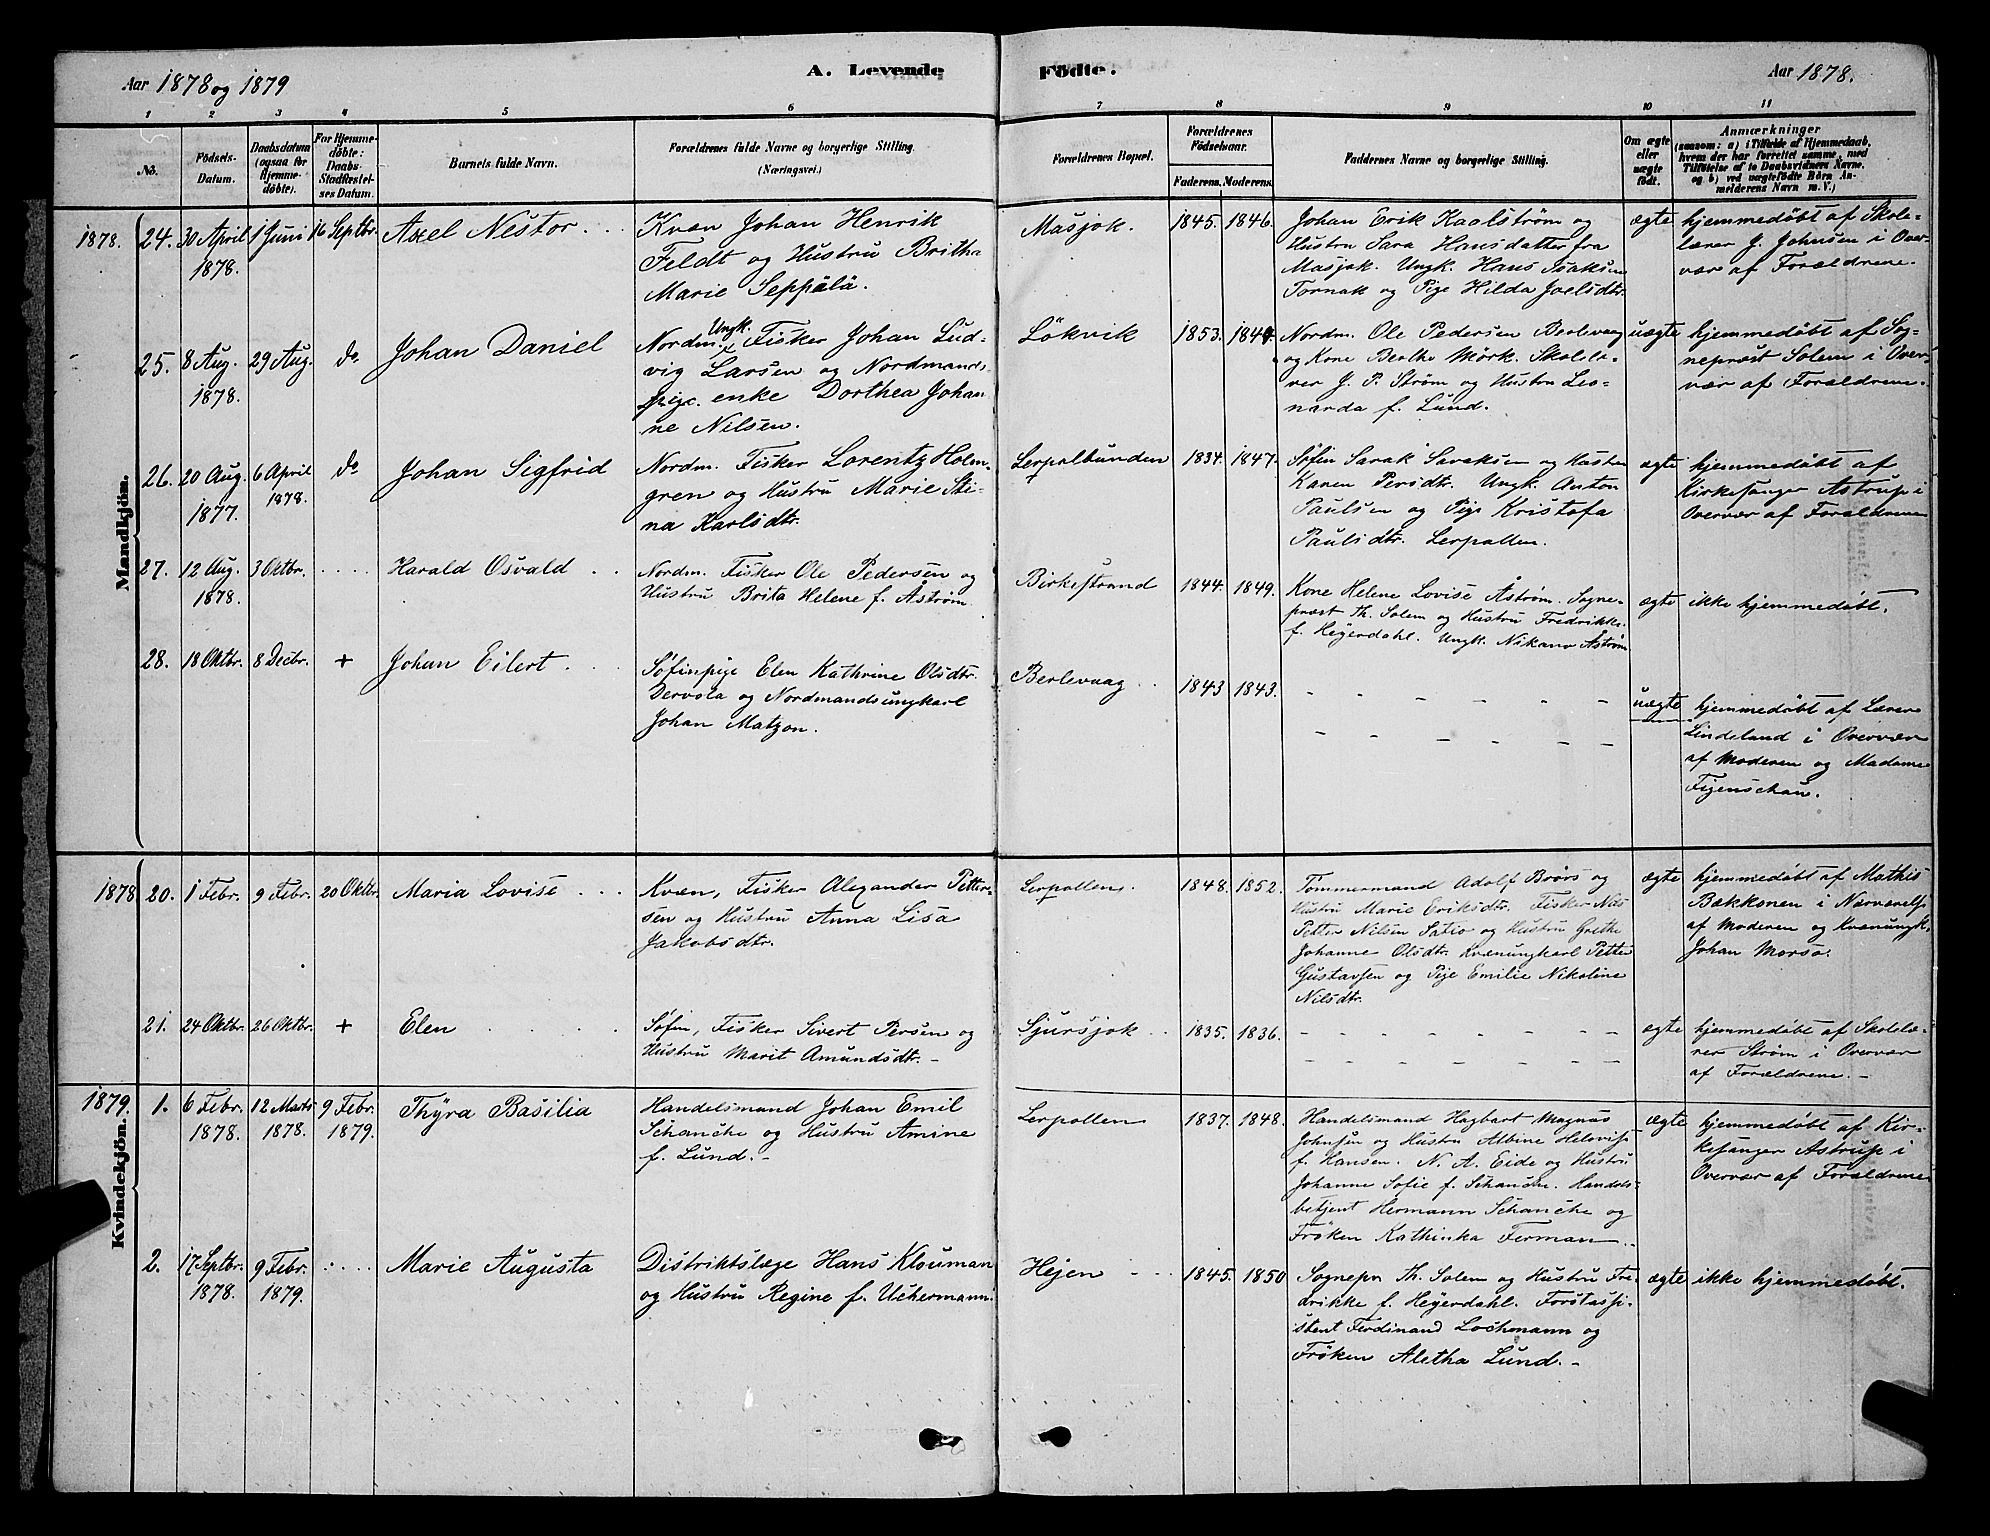 Aar 1878 og 1879
A. Levende Födte.
Aar 1878.
1 2 3 4 5 6 7 8 9 10 11
No.
Födsels-
Datum.
Daabsdatum
(ogsaa for
Hjemme-
döbte).
For Hjemme-
döbte:
Daabs-
Stadfæstel-
ses Datum.
Barnets fulde Navn.
Forældrenes fulde Navne og borgerlige Stilling
(Næringsvei.)
Forældrenes Bopæl.
Forældrenes
Födselsaar.
Faderens. Moderens.
Faddernes Navne og borgerlige Stilling.
Om ægte
eller
uægte
födt.
Anmærkninger
(saasom: a) i Tilfælde af Hjemmedaab,
hvem der har forrettet samme, med
Tilföielse af to Daabsvidners Navne,
og b) ved uægtefödte Börn An-
melderens Navn m. V.)
Mandkjön.
1878. 24. 30 April 1 Juni 16 Septbr. Axel Nestor
1878.
Kvæn Johan Henrik
Feldt og Hustru Britha
Marie Seppälä.
Masjok. 1845. 1846.
Johan Erik Kaolström og
Hustru Sara Hansdatter fra
Masjok. Ungk. Hans Isaksen
Tornak og Pige Hilda Joelsdtr.
ægte
hjemmedöbt af Skole-
lærer J. Johnsen i Over-
vær af Forældrene.
25. 8 Aug. 29 Aug. do Johan Daniel
1878.
Ungk.
Nordm. Fisker Johan Lud-
vig Larsen og Nordmands-
pige. enke Dorthea Johan
ne Nilsen.
Lökvik 1853.
Nordm. Ole Pedersen Berlevaag
og Kone Berthe Mörk. Skolelæ-
rer J. P. Ström og Hustru Leo-
narda f. Lund.
uægte
hjemmedöbt af Sog-
nepræst Solem i Over-
vær af Forældrene.
26. 20 Aug. 6 April do Johan Sigfrid
1877. 1878.
Nordm. Fisker Lorentz Holm-
gren og Hustru Marie Sti-
na Karlsdtr.
Lerpolbunden 1834. 1847.
Söfin Sarak Savaksen og Hustru
Karen Persdtr. Ungk. Anton
Paulsen og Pige Kristofa
Paulsdtr. Lerpollen.
ægte
hjemmedöbt af
Kirkesanger Astrup i
Overvær af Forældrene
27. 12 Aug. 3 Oktbr. Harald Osvald
1878.
Nordm. Fisker Ole Pedersen og
Hustru Brita Helene f. Åström.
Birkestrand 1844. 1849.
Kone Helene Lovise Åström. Sogne-
præst Th. Solem og Hustru Fredrikke
f. Heyerdahl. Ungk. Nikanor Åström
ægte ikke hjemmedöbt.
28. 18 Oktbr. 8 Decbr. + Johan Eilert
Söfinpige Elen Kathrine Olsdtr.
Dervola og Nordmandsungkarl
Johan Matzon.
Berlevaag 1843 1843.
uægte
hjemmedöbt af Lærer
Lindeland i Overvær
af Moderen og Madame
Figenschau.
Kvindekjön.
1878 20. 1 Febr. 9 Febr. 20 Oktbr. Maria Lovise
Kvæn, Fisker Alexander Petter-
sen og Hustru Anna Lisa
Jakobsdtr.
Lerpollen. 1848. 1852.
Tömmermand Adolf Brörs og
Hustru Marie Eriksdtr. Fisker Nils
Petter Nilsen Satio og Hustru Grethe
Johanne Olsdtr. Kvænungkarl Petter
Gustavsen og Pige Emilie Nikoline
Nilsdtr.
ægte
hjemmedöbt af Mathis
Bækkonen i Nærværelse
af Moderen og Kvænungk.
Johan Morso.
21. 24 Oktbr. 26 Oktbr. + Elen
Söfin, Fisker Sivert Persen og
Hustru Marit Amundsdtr. -
Sjursjok 1835. 1836.
ægte
hjemmedöbt af Skolelæ-
rer Ström i Overvær
af Forældrene. -
1879. 1. 6 Febr. 12 Marts 9 Febr. Thÿra Basilia
1878. 1878. 1879.
Handelsmand Johan Emil
Schanche og Hustru Amine
f. Lund. -
Lerpollen 1837. 1848.
Handelsmand Hagbart Magnus
Johnsen og Hustru Albine Helovise
f. Hansen. N. A. Eide og Hustru
Johanne Sofie f. Schanche. Handels-
betjent Hermann Schanche og
Fröken Kathinka Ferman
ægte
hjemmedöbt af Kir-
kesanger Astrup i
Overvær af Forældrene
2. 17 Septbr. 9 Febr. Marie Augusta
1878. 1879.
Distriktslæge Hans Klouman
og Hustru Regine f. Uchermann.
Hejen 1845. 1850
Sognepr. Th. Solem og Hustru Fre-
drikke f. Heyerdahl. Forstassi-
stent Ferdinand Lochmann og
Fröken Aletha Lund. -
ægte ikke hjemmedöbt.